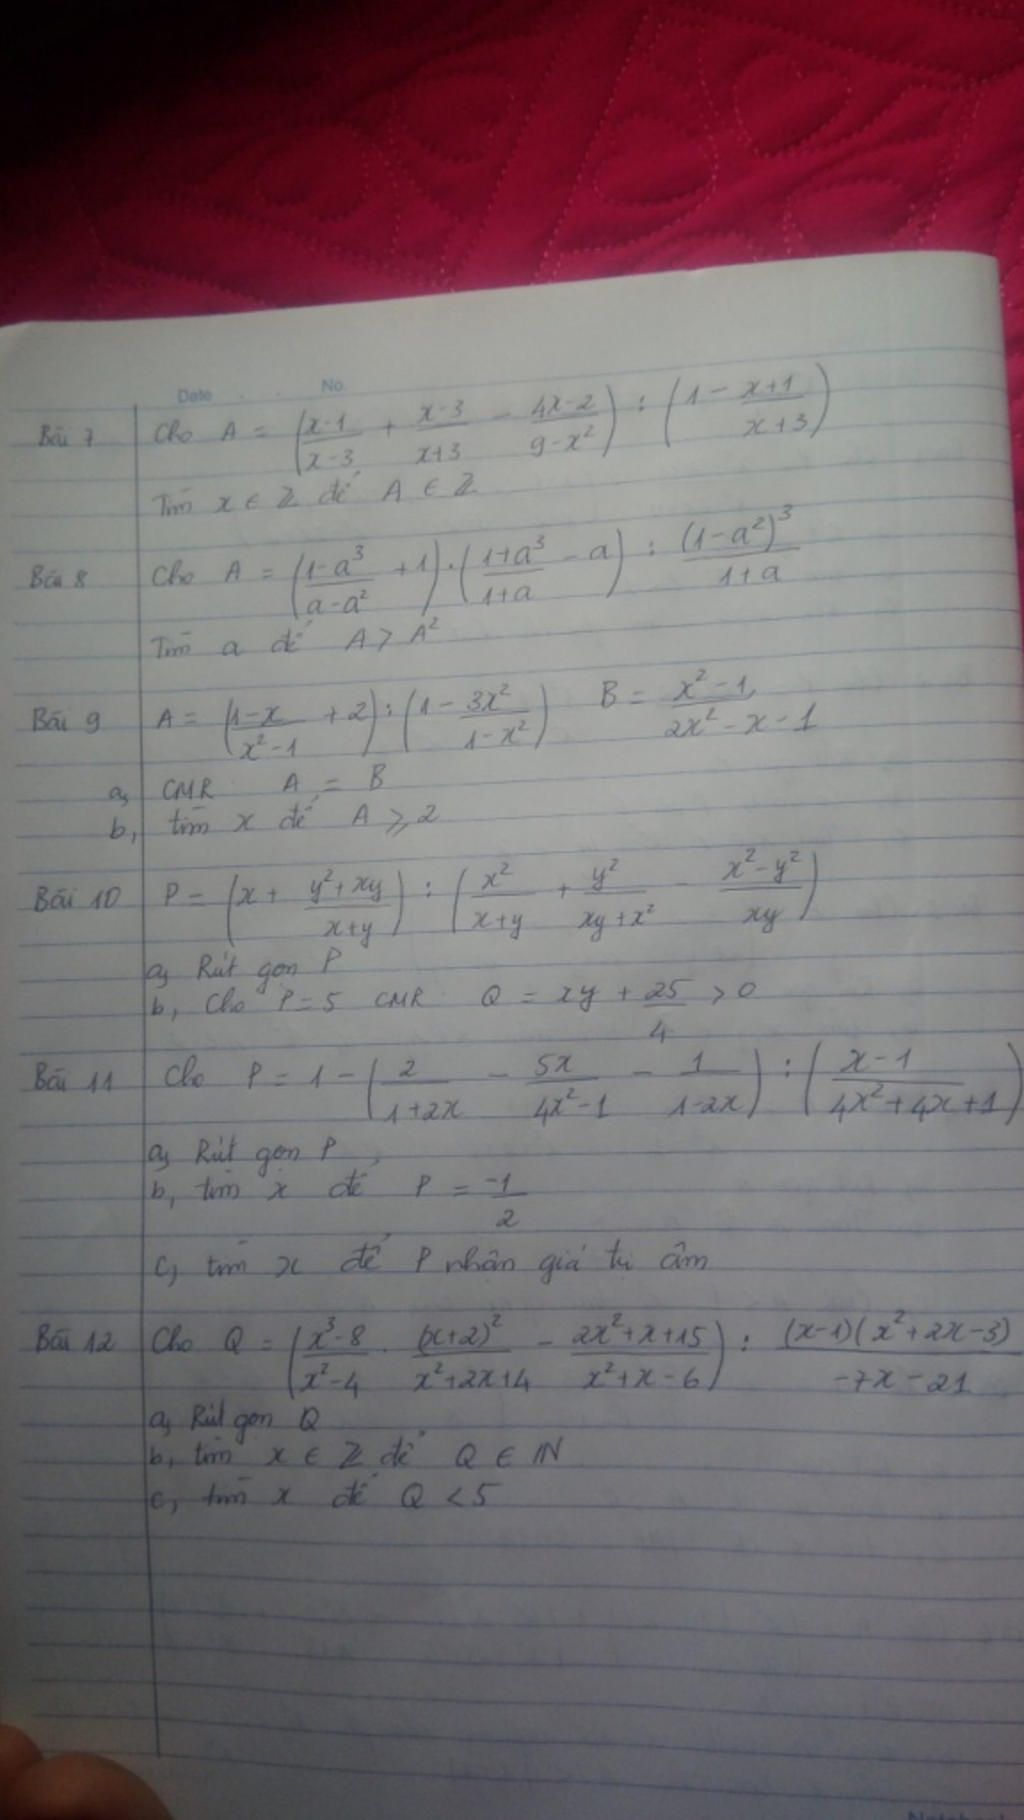 Date No.
Bài 7 Cho A = ((x-1)/(x-3) + (x-3)/(x+3) - (4x-2)/(9-x²)) : (1 - (x+1)/(x+3))
Tìm x ∈ Z để A ∈ Z
Bài 8 Cho A = ((1-a³)/(a-a²) + 1) . ((1+a³)/(1+a) - a) : (1-a²)³/(1+a)
Tìm a để A > A²
Bài 9 A = ((1-x)/(x²-1) + 2) : (1 - 3x²/(1-x²)) B = (x²-1)/(2x²-x-1)
a, CMR A = B
b, tìm x để A ⩾ 2
Bài 10 P = (x + (y²+xy)/(x+y)) : (x²/(x+y) + y²/(xy+x²) - (x²-y²)/xy)
a, Rút gọn P
b, Cho P = 5 CMR Q = xy + 25/4 > 0
Bài 11 Cho P = 1 - (2/(1+2x) - 5x/(4x²-1) - 1/(1-2x)) : ((x-1)/(4x²+4x+1))
a, Rút gọn P
b, tìm x để P = -1/2
c, tìm x để P nhận giá trị âm
Bài 12 Cho Q = ((x³-8)/(x²-4) . (x+2)²/(x²+2x+4) - (2x²+x+15)/(x²+x-6)) : (x-1)(x²+2x-3)/(-7x-21)
a, Rút gọn Q
b, tìm x ∈ Z để Q ∈ N
c, tìm x để Q < 5